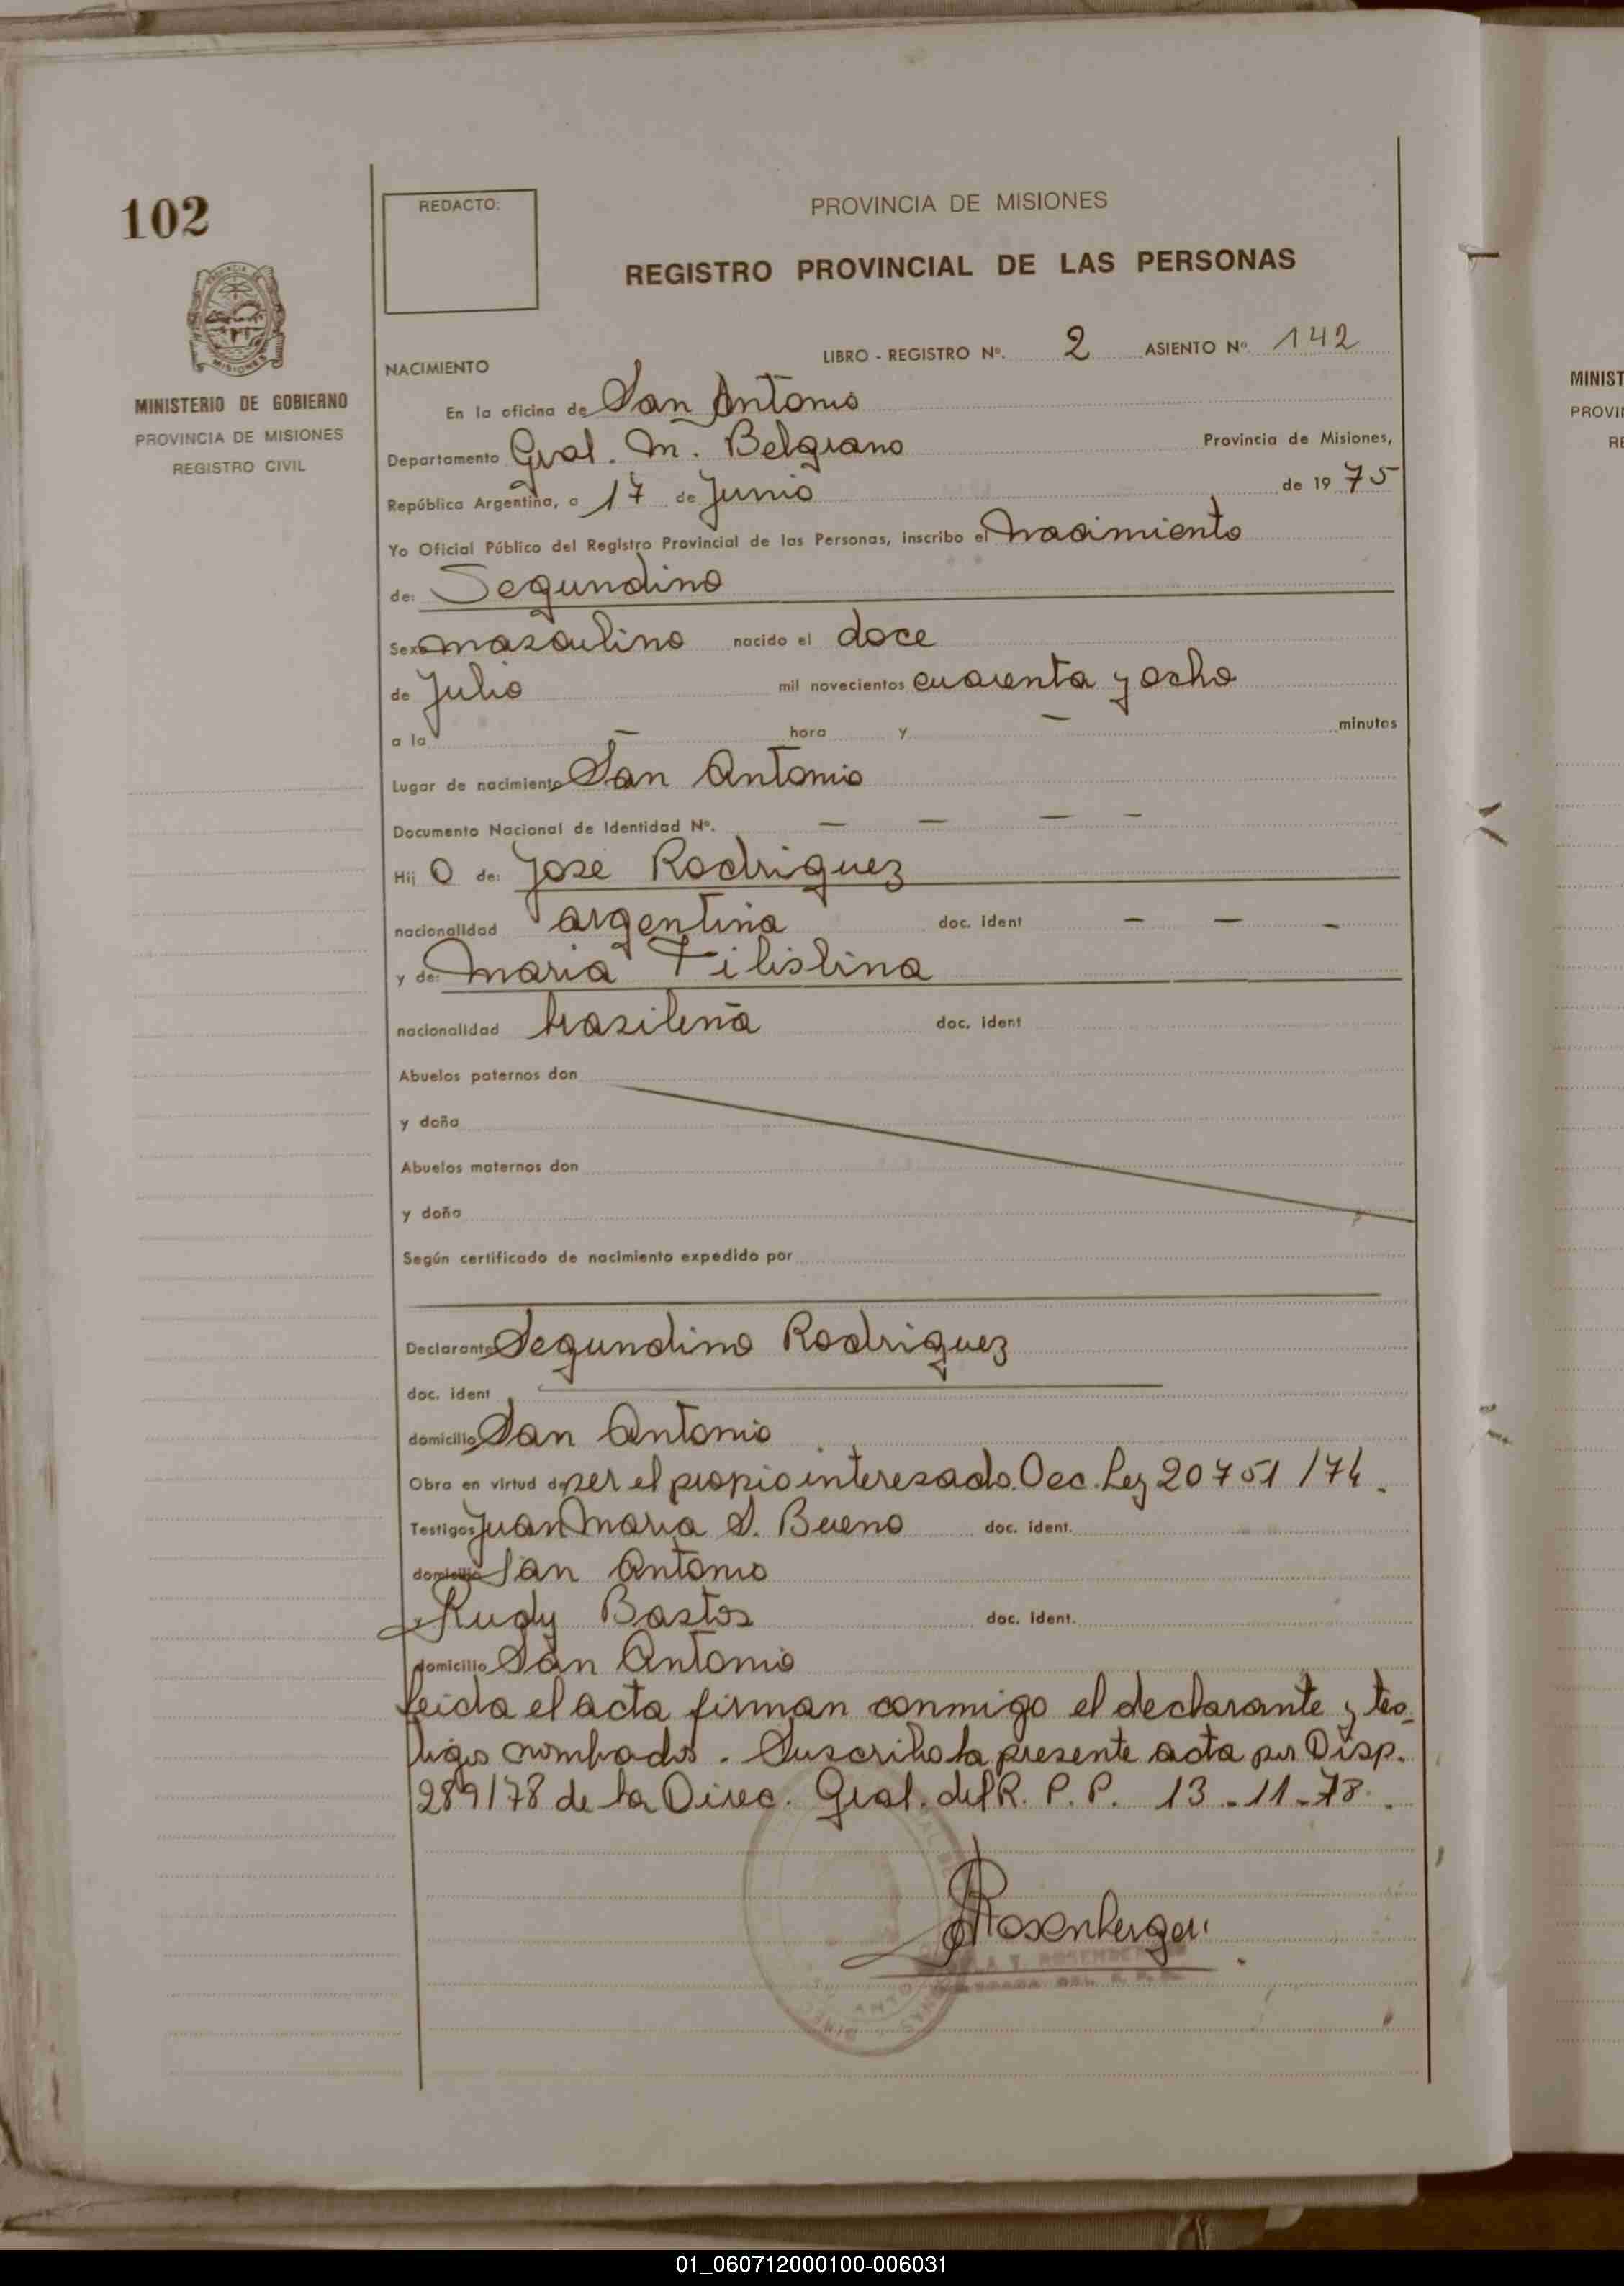 102
REDACTO:
PROVINCIA DE MISIONES
REGISTRO PROVINCIAL DE LAS PERSONAS
MINISTERIO DE GOBIERNO
PROVINCIA DE MISIONES
REGISTRO CIVIL
LIBRO - REGISTRO Nº. 2 ASIENTO Nº 142
NACIMIENTO
En la oficina de San Antonio
Departamento Gral. M. Belgrano Provincia de Misiones,
República Argentina, a 17 de Junio de 1975
Yo Oficial Público del Registro Provincial de las Personas, inscribo el nacimiento
de: Segundino
Sexo masculino nacido el doce
de Julio mil novecientos cuarenta y ocho
a la — hora y — minutos
Lugar de nacimiento San Antonio
Documento Nacional de Identidad Nº. — — — —
Hij O de: José Rodriguez
nacionalidad argentina doc. ident — — —
y de: Maria Filislina
nacionalidad brasileña doc. ident
Abuelos paternos don
y doña
Abuelos maternos don
y doña
Según certificado de nacimiento expedido por
Declarante Segundino Rodriguez
doc. ident
domicilio San Antonio
Obra en virtud de ser el propio interesado. Dec. Ley 20751/74.
Testigos Juan Maria S. Bueno doc. ident.
domicilio San Antonio
y Rudy Bastos doc. ident.
domicilio San Antonio
leida el acta firman conmigo el declarante y tes-
tigos nombrados. Suscribo la presente acta por Disp.
289/78 de la Direc. Gral. del R. P. P. 13-11-78.
Rosenberger
MINIST
PROVI
RE
01_060712000100-006031